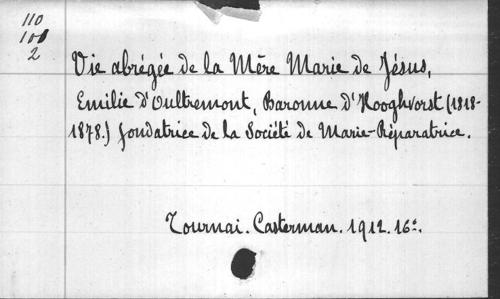 110
101
2
Vie abrégée de la Mère Marie de Jésus,
Emilie d'Oultremont, Baronne d'Hooghvorst (1818-
1878.) fondatrice de la Société de Marie-Réparatrice.
Tournai. Casterman. 1912. 16º.